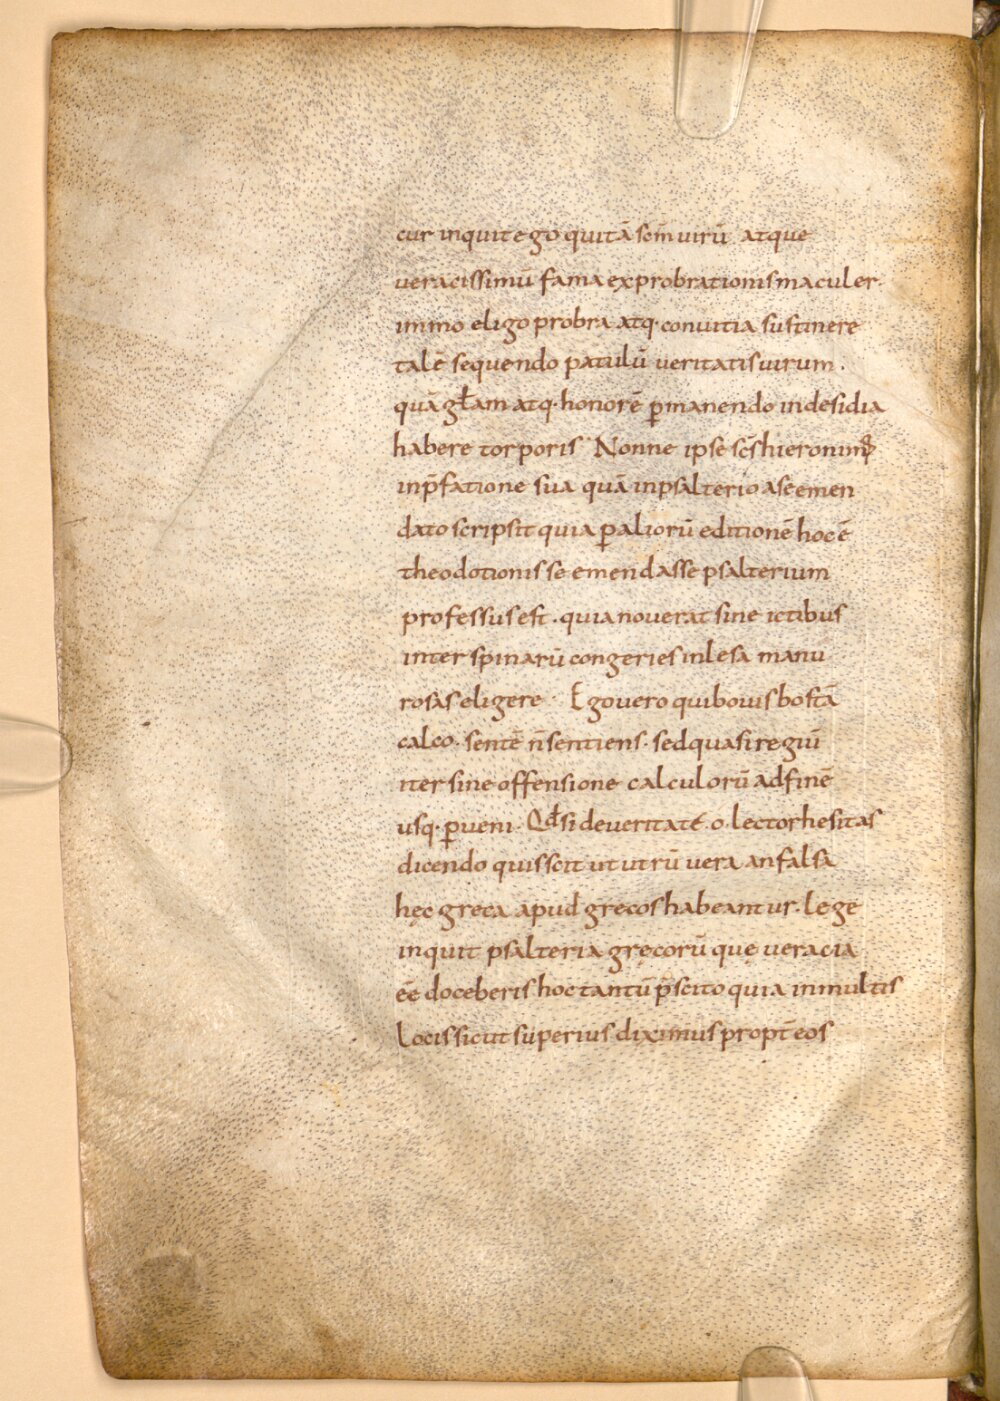 cur inquit ego qui tā sc̄m uirū atque
ueracissimū fama exprobrationis maculer·
immo eligo probra atq· conuitia sustinere
talē sequendo patulū ueritatis uirum·
quā gl̄am atq· honorē p̄manendo in desidia
habere torporis· Nonne ipse sc̄s hieronimꝰ
in p̄fatione sua quā in psalterio a se emen
dato scripsit quia p̄ aliorū editionē hoc ē
theodotionis se emendasse psalterium
professus est· quia nouerat sine ictibus
inter spinarū congeries inlesa manu
rosas eligere· Ego uero qui bouis bostā
calco· sentē n̄ sentiens· sed quasi regiū
iter sine offensione calculorū ad finē
usq· p̄ueni· Qd̄ si de ueritate o· lector hesitas
dicendo quis scit ut utrū uera an falsa
hęc greca apud grecos habeantur· Lege
inquit psalteria gręcorū quę ueracia
ēē doceberis hoc tantū p̄scito quia in multis
locis sicut superius diximus propt̄ eos